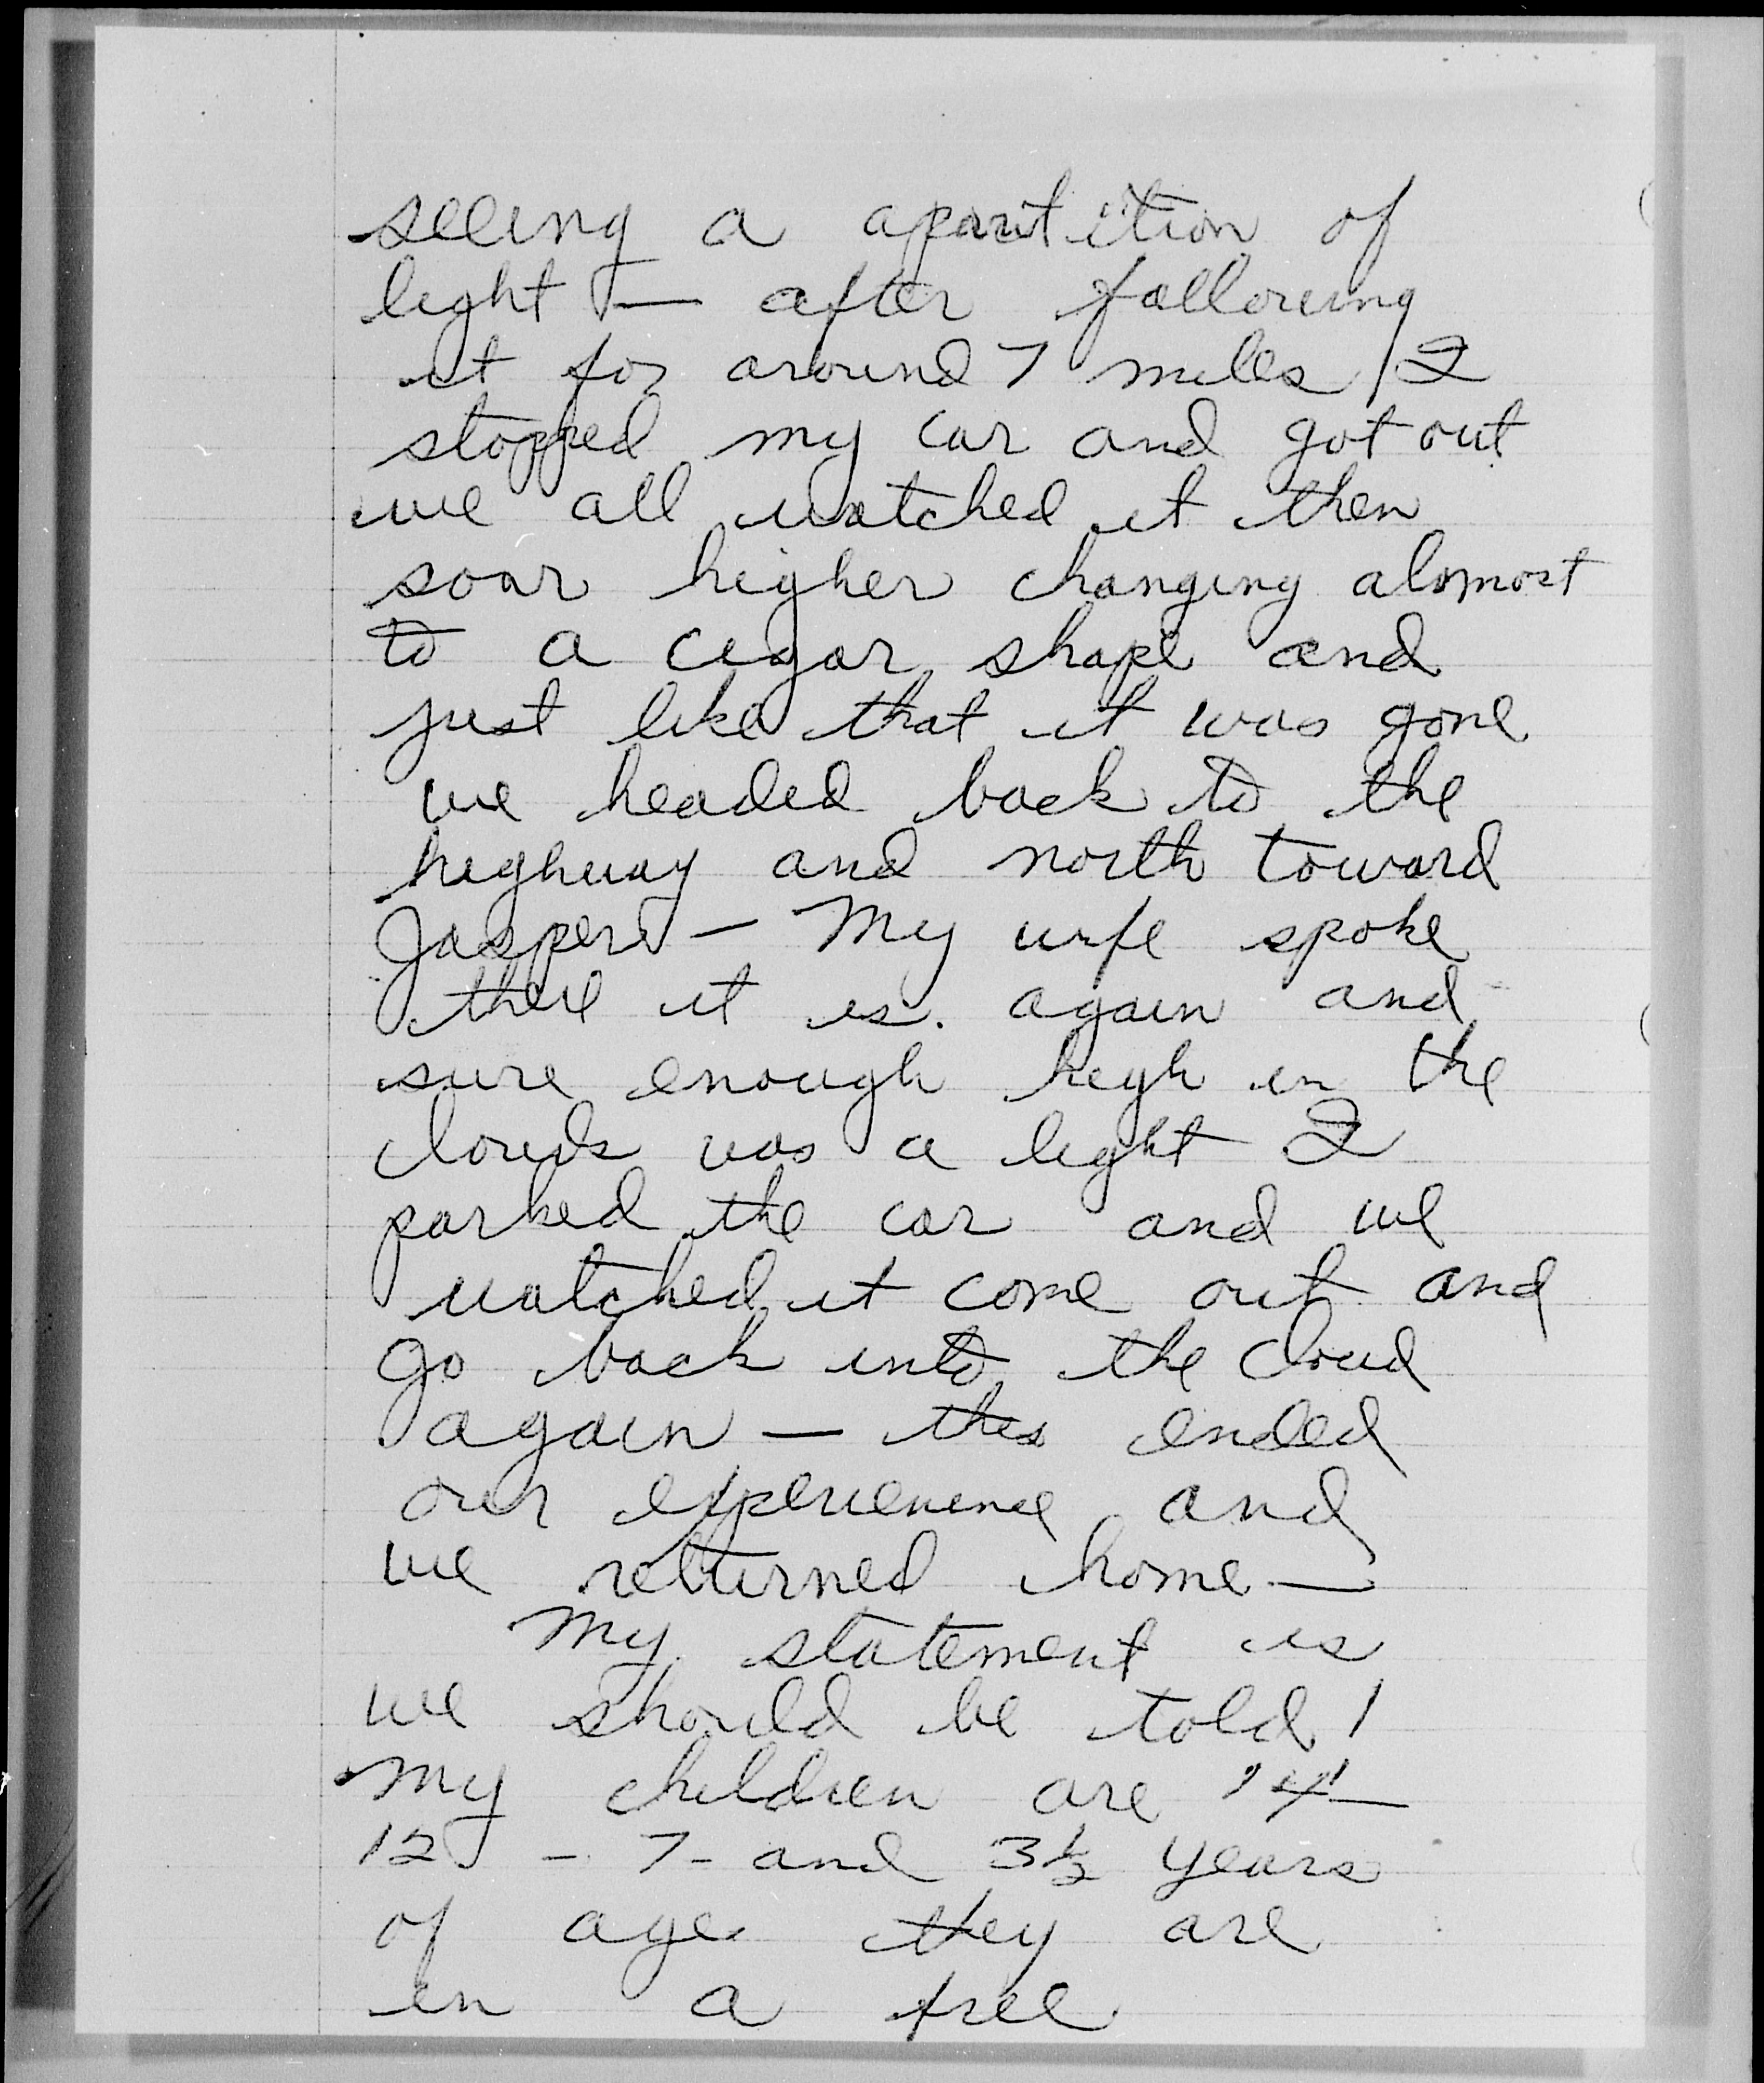 seeing a aparitition of
light — after following
it for around 7 miles I
stopped my car and got out
we all watched it then
soar higher changing alomost
to a cigar shape and
just like that it was gone
we headed back to the
highway and north toward
Jasper — My wife spoke
there it is. again and
sure enough high in the
clouds was a light I
parked the car and we
watched it come out and
go back into the cloud
again — this ended
our experienence and
we returned home —
My statement is
we should be told!
My children are 14 —
12 — 7 - and 3½ years
of age they are
in a free